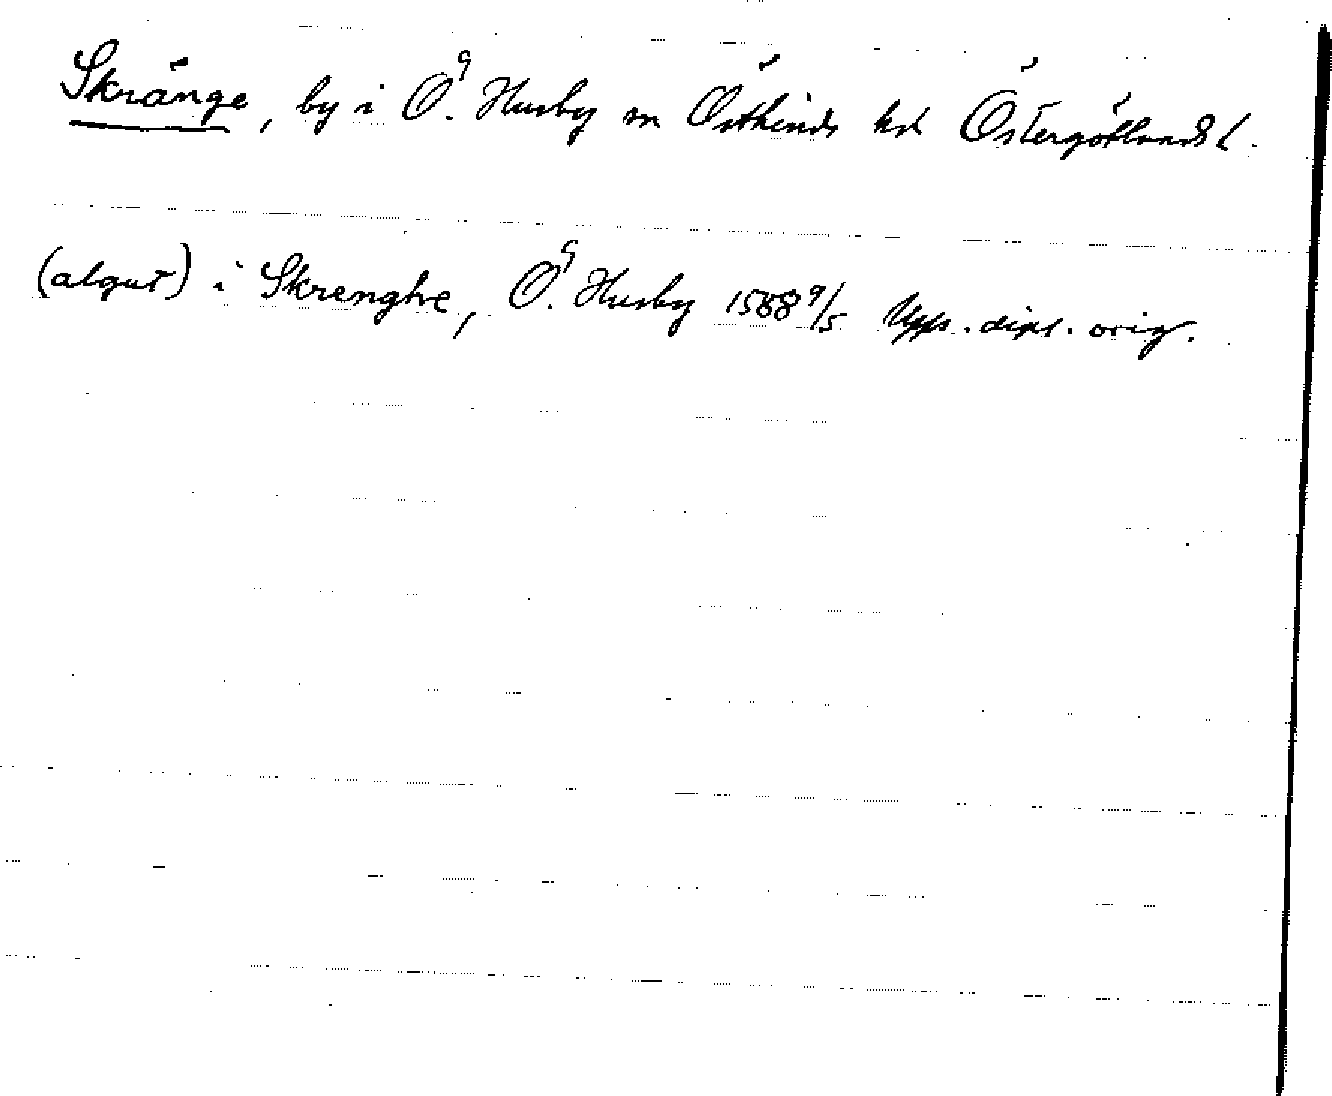 Skränge, by i Ö. Husby sn Östkinds hd Östergötlands l.
(algut) i Skrenghe, Ö. Husby 1568 9/5 Upps. dipl. orig.